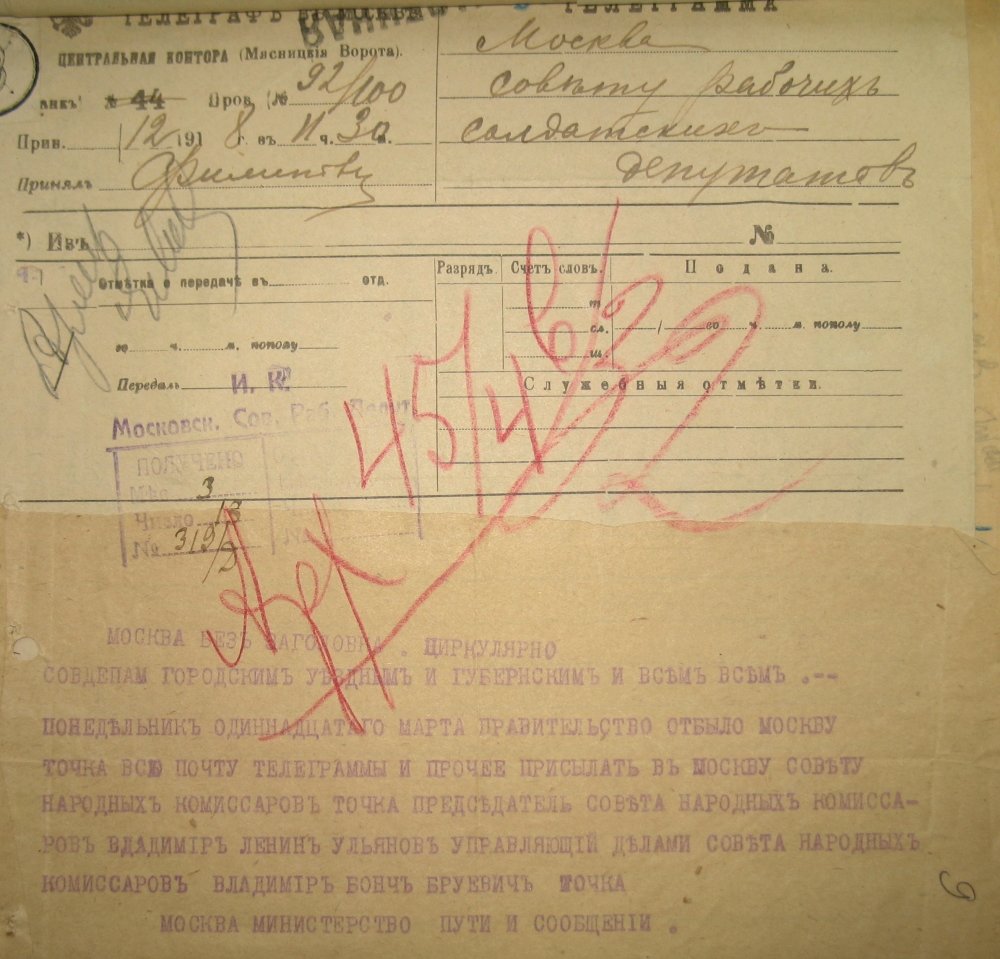 ТЕЛЕГРАФЪ ВЪ МОСКВѢ
ТЕЛЕГРАММА
ЦЕНТРАЛЬНАЯ КОНТОРА (Мясницкія Ворота).
Москва
совѣту рабочихъ
солдатскихъ
депутатовъ
44 Пров. (№ 92/100
Прин. 12 1918 г. въ 11 ч. 30 м.
Принялъ
*) Изъ №
Отмѣтка о передачѣ въ отд.
ч. м. пополу
Передалъ
Разрядъ. Счетъ словъ. Подана.
сл. / го ч. м. пополу
ш.
Служебныя отмѣтки.
И. К.
Московск. Сов. Раб. Депут
ПОЛУЧЕНО
Мѣс. 3
Число 13
№ 319/2
45/4
МОСКВА БЕЗЪ ЗАГОЛОВКА . ЦИРКУЛЯРНО
СОВДЕПАМ ГОРОДСКИМЪ УѢЗДНЫМЪ И ГУБЕРНСКИМЪ И ВСѢМЪ ВСѢМЪ .--
ПОНЕДѢЛЬНИКЪ ОДИННАДЦАТАГО МАРТА ПРАВИТЕЛЬСТВО ОТБЫЛО МОСКВУ
ТОЧКА ВСЮ ПОЧТУ ТЕЛЕГРАММЫ И ПРОЧЕЕ ПРИСЫЛАТЬ ВЪ МОСКВУ СОВѢТУ
НАРОДНЫХЪ КОМИССАРОВЪ ТОЧКА ПРЕДСѢДАТЕЛЬ СОВѢТА НАРОДНЫХЪ КОМИССА-
РОВЪ ВДАДИМІРЪ ЛЕНИНЪ УЛЬЯНОВЪ УПРАВЛЯЮЩІЙ ДѢЛАМИ СОВѢТА НАРОДНЫХЪ
КОМИССАРОВЪ ВЛАДИМІРЪ БОНЧЪ БРУЕВИЧЪ ТОЧКА
МОСКВА МИНИСТЕРСТВО ПУТИ И СООБЩЕНІИ .